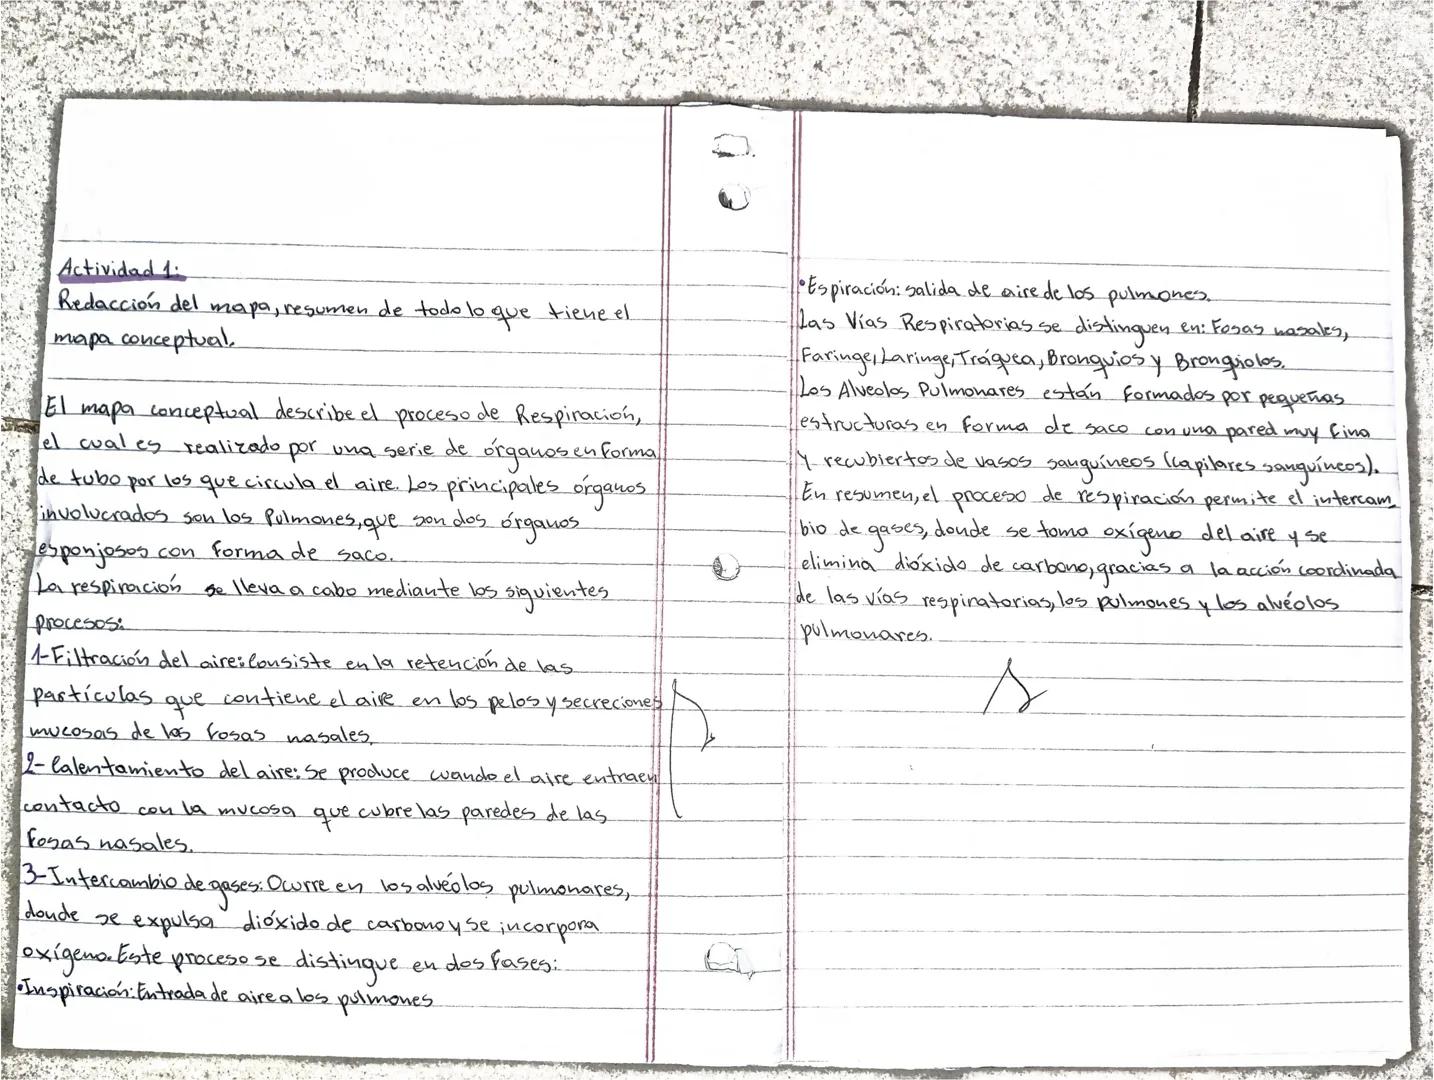 Actividad 1:
Redacción del mapa, resumen de todo lo que tiene el
mapa conceptual.
El mapa conceptual describe el proceso de Respiración,
el cual es realizado por una serie de órganos en forma
de tubo por los que circula el aire. Los principales órganos
involucrados son los Pulmones, que son dos órganos
esponjosos con forma de saco.
La respiración se lleva a cabo mediante los siguientes
procesos:
1-Filtración del aire: Consiste en la retención de las
partículas que contiene el aire en los pelos y secreciones
mucosas de las fosas nasales.
2-Calentamiento del aire: Se produce cuando el aire entra en
contacto con la mucosa que cubre las paredes de las
fosas nasales.
3-Intercambio de gases: Ocurre en los alvéolos pulmonares,
donde se expulsa dióxido de carbono y se incorpora
oxígeno. Este proceso se distingue en dos fases:
•Inspiración: Entrada de aire a los pulmones
•Espiración: salida de aire de los pulmones.
Las Vías Respiratorias se distinguen en: Fosas nasales,
Faringe, Laringe, Tráquea, Bronquios y Bronqiolos.
Los Alveolos Pulmonares están formados por pequeñas
estructuras en forma de saco con una pared muy fina
y recubiertos de vasos sanguíneos (capilares sanguíneos).
En resumen, el proceso de respiración permite el intercam_
bio de gases, donde se toma oxígeno del aire y se
elimina dióxido de carbono, gracias a la acción coordinada
de las vías respiratorias, los pulmones y los alvéolos
pulmonares.